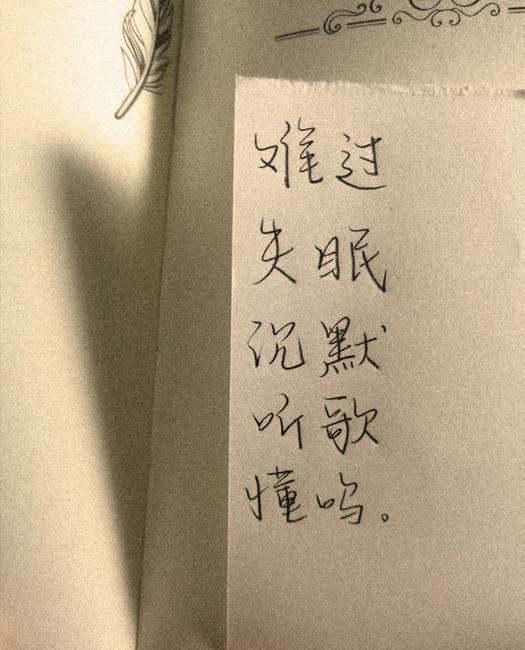 难过
失眠
沉默
听歌
懂吗。